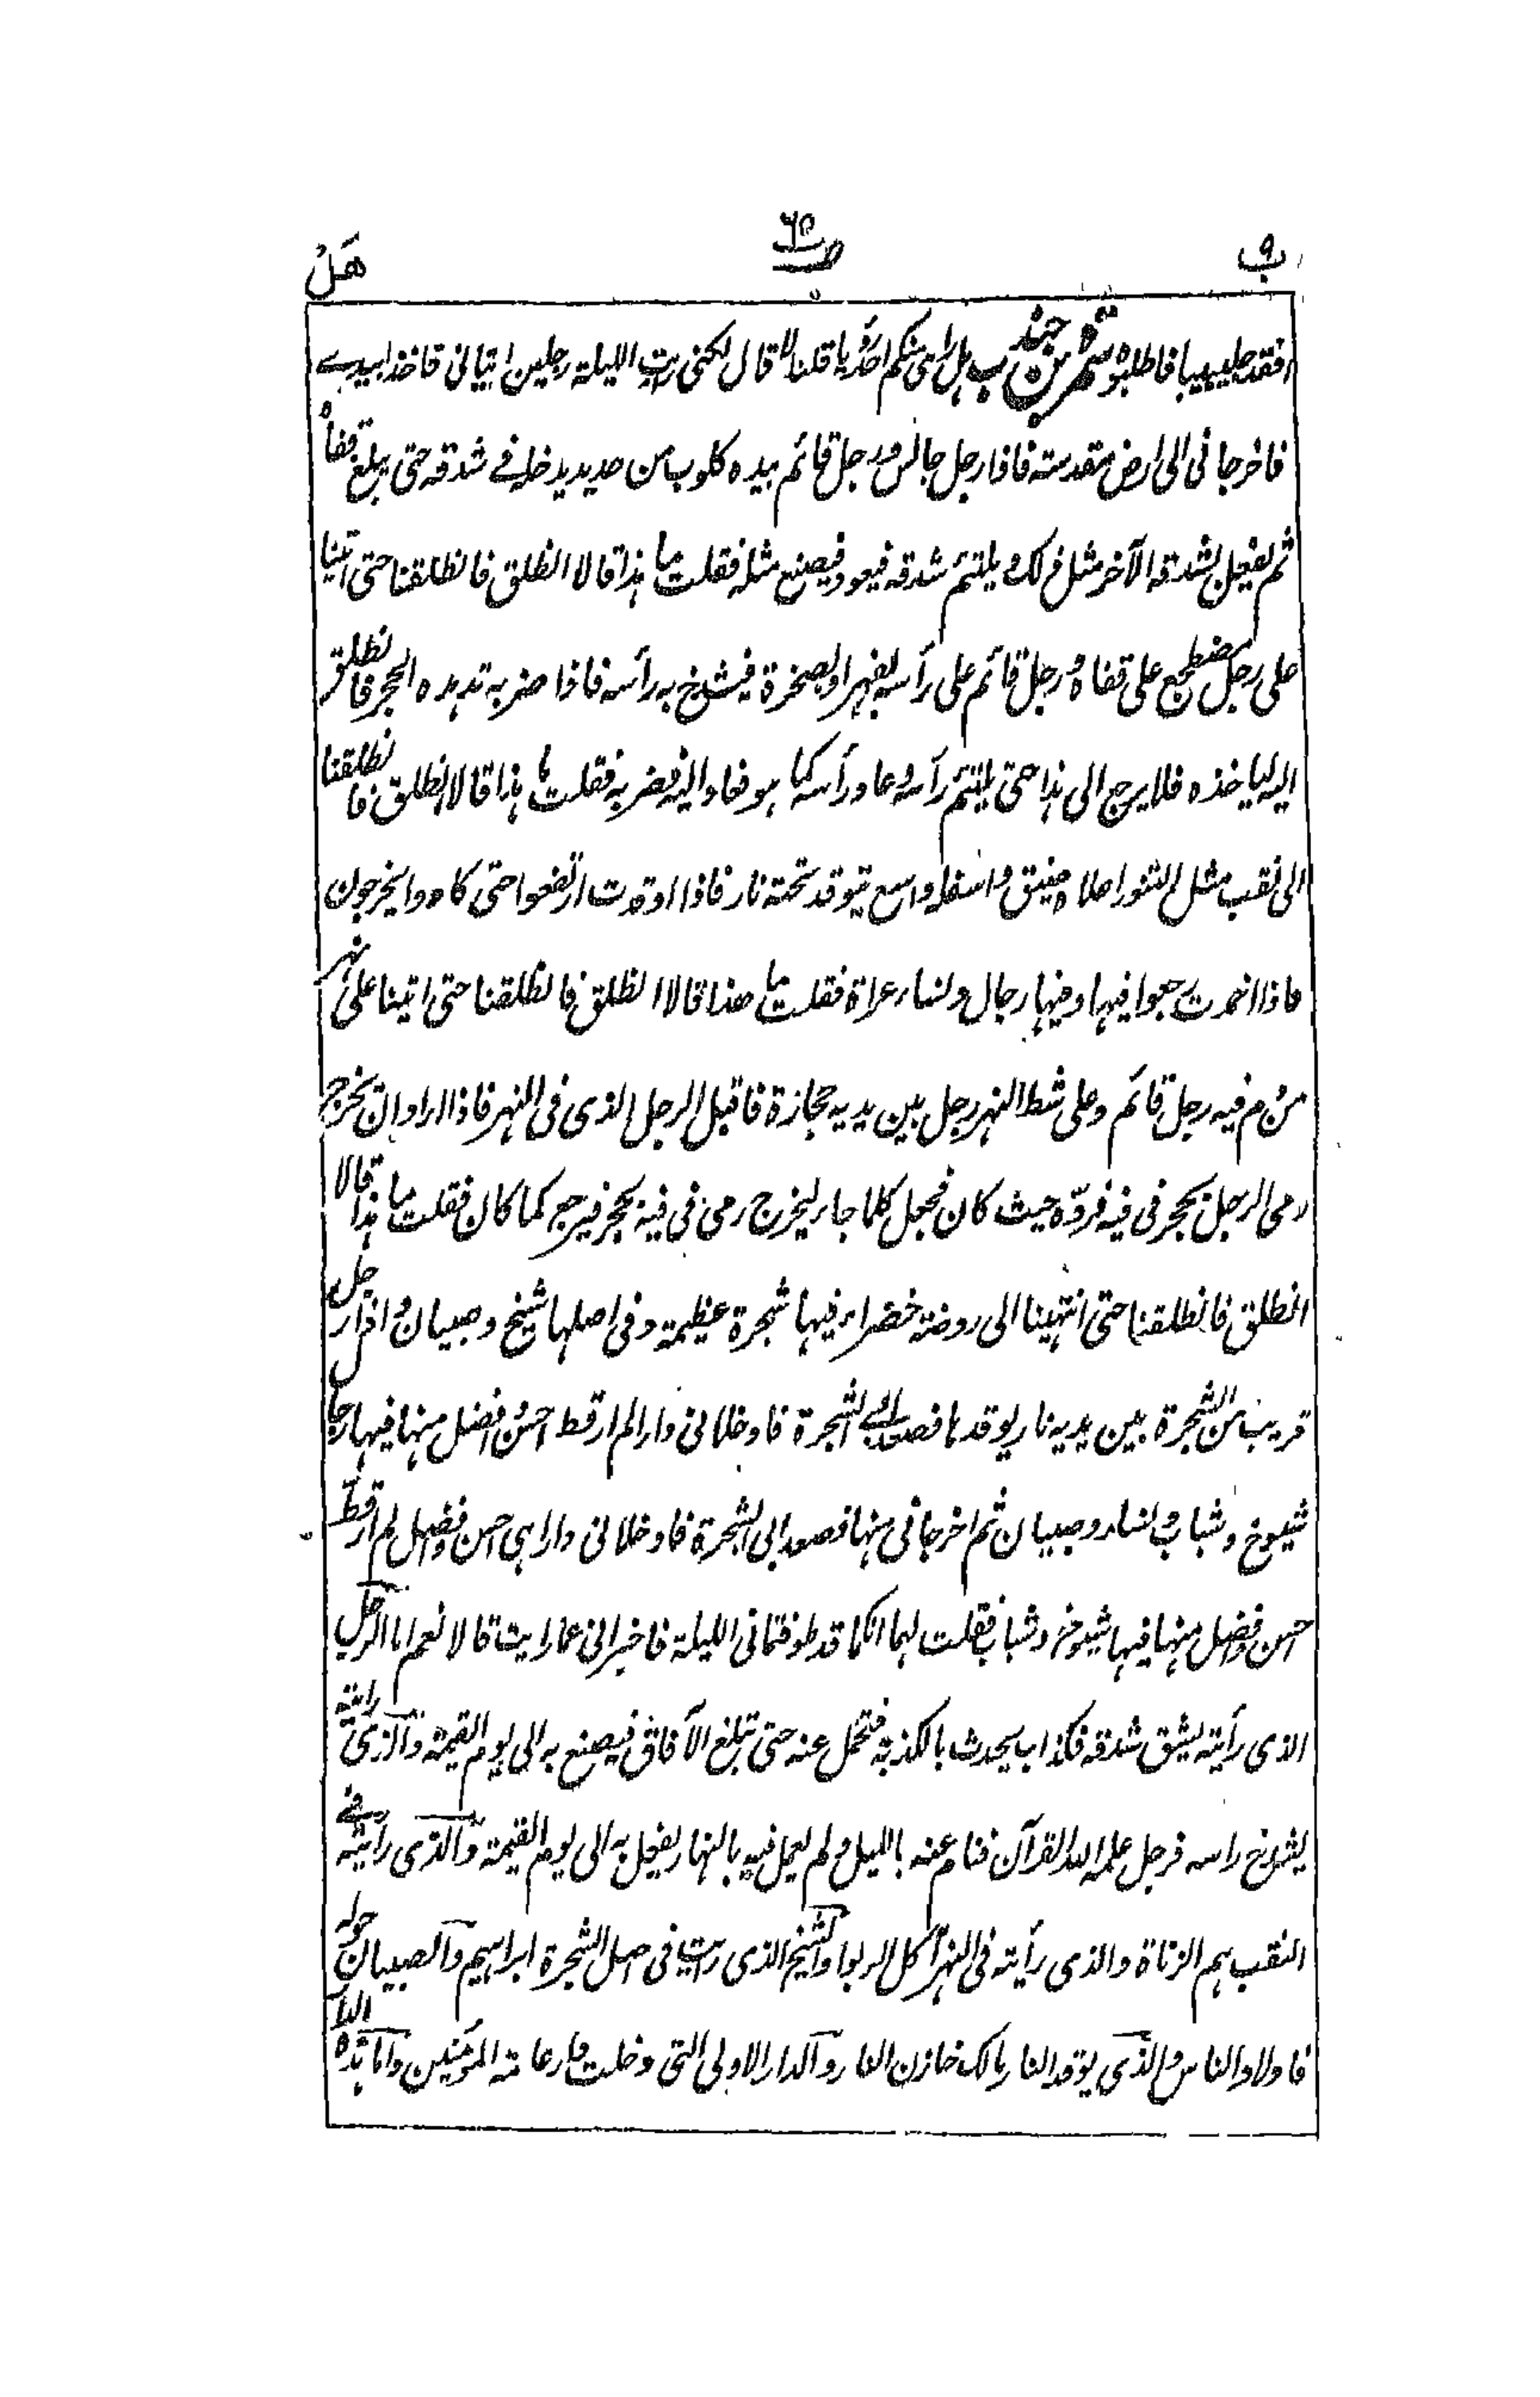 ب ٩
ص ٦٥
هَلْ
افقد جليبيبا فاطلبوه سمرة بن جندب هل راى منكم احد رؤيا قلنا لا قال لكنى رايت الليلة رجلين اتيانى فاخذا بيدے
فاخرجانى الى ارض مقدسة فاذا رجل جالس ورجل قائم بيده كلوب من حديد يدخله فے شدقه حتى يبلغ قفاه
ثم يفعل بشدقه الآخر مثل ذلك ويلتئم شدقه فيعود فيصنع مثله فقلت ما هذا قالا انطلق فانطلقنا حتى اتينا
على رجل مضطجع على قفاه ورجل قائم على رأسه بفهر او بصخرة فيشدخ به رأسه فاذا ضربه تدهده الحجر فانطلق
اليه ليأخذه فلا يرجع الى هذا حتى يلتئم رأسه وعاد رأسه كما هو فعاد اليه فضربه فقلت ما هذا قالا انطلق فانطلقنا
الى نقب مثل التنور اعلاه ضيق واسفله واسع يتوقد تحته نار فاذا اوقدت ارتفعوا حتى كادوا يخرجون
فاذا اخمدت رجعوا فيها وفيها رجال ونساء عراة فقلت ما هذا قالا انطلق فانطلقنا حتى اتينا على نهر
من دم فيه رجل قائم وعلى شط النهر رجل بين يديه حجارة فاقبل الرجل الذى فى النهر فاذا اراد ان يخرج
رمى الرجل بحجر فى فيه فردّه حيث كان فجعل كلما جاء ليخرج رمى فى فيه بحجر فيرجع كما كان فقلت ما هذا قالا
انطلق فانطلقنا حتى انتهينا الى روضة خضراء فيها شجرة عظيمة وفى اصلها شيخ وصبيان واذا رجل
قريب من الشجرة بين يديه نار يوقدها فصعدا بى الشجرة فادخلانى دارا لم ار قط احسن وافضل منها فيها رجال
شيوخ وشباب ونساء وصبيان ثم اخرجانى منها فصعدا بى الشجرة فادخلانى دارا هى احسن وافضل لم ار قط
احسن وافضل منها فيها شيوخ وشباب فقلت لهما انكما قد طوفتمانى الليلة فاخبرانى عما رايت قالا نعم اما الرجل
الذى رأيته يشق شدقه فكذاب يحدث بالكذبة فتحمل عنه حتى تبلغ الآفاق فيصنع به الى يوم القيمة والذى رأيته
يشدخ راسه فرجل علمه الله القرآن فنام عنه بالليل ولم يعمل فيه بالنهار يفعل به الى يوم القيمة والذى رأيته فے
النقب هم الزناة والذى رأيته فى النهر آكل الربوا والشيخ الذى رايت فى اصل الشجرة ابراهيم والصبيان حوله
فاولاد الناس والذى يوقد النار مالك خازن النار والدار الاولى التى دخلت دار عامة المؤمنين واما هذه الدار